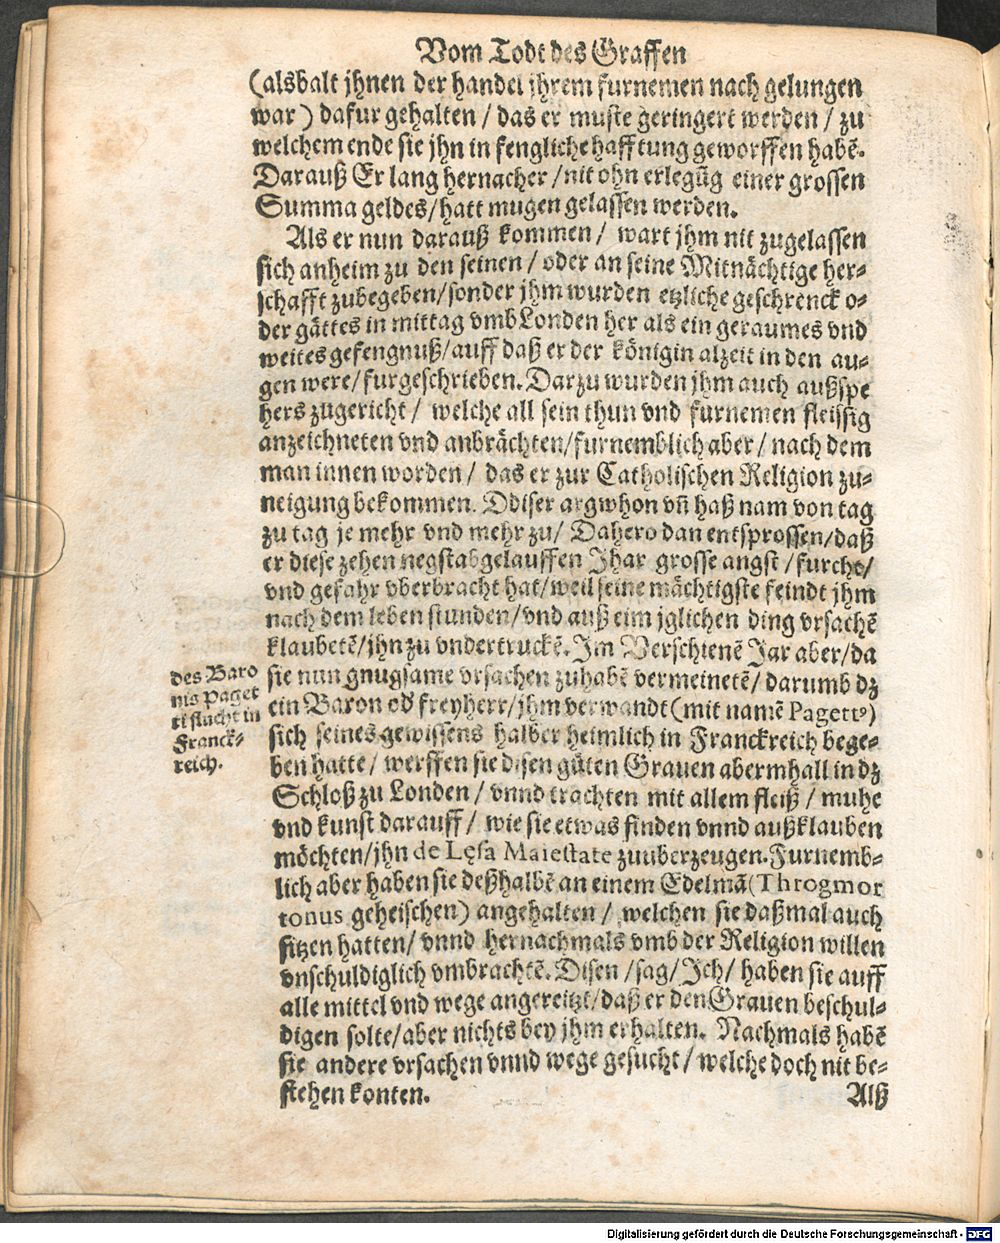 Vom Todt des Graffen
(alsbalt jhnen der handel jhrem furnemen nach gelungen
war) dafur gehalten / das er muste geringert werden / zu
welchem ende sie jhn in fengliche hafftung geworffen habē.
Darauß Er lang hernacher / nit ohn erlegūg einer grossen
Summa geldes / hatt mugen gelassen werden.
Als er nun darauß kommen / wart jhm nit zugelassen
sich anheim zu den seinen / oder an seine Mitnächtige her-
schafft zubegeben / sonder jhm wurden etzliche geschrenck o-
der gåttes in mittag vmb Londen her als ein geraumes vnd
weites gefengnuß / auff daß er der königin alzeit in den au-
gen were / furgeschrieben. Darzu wurden jhm auch außspe
hers zugericht / welche all sein thun vnd furnemen fleissig
anzeichneten vnd anbrächten / furnemblich aber / nach dem
man innen worden / das er zur Catholischen Religion zu-
neigung bekommen. Ddiser argwhon vñ haß nam von tag
zu tag je mehr vnd mehr zu / Dahero dan entsprossen / daß
er diese zehen negstabgelauffen Jhar grosse angst / furcht /
vnd gefahr vberbracht hat / weil seine mächtigste feindt jhm
nach dem leben stunden / vnd auß eim jglichen ding vrsachē
klaubetē / jhn zu vndertruckē. Im Verschienē Jar aber / da
sie nun gnugsame vrsachen zuhabē vermeinetē / darumb dz
ein Baron od̕ freyherr / jhm verwandt (mit namē Pagettꝰ)
sich seines gewissens halber heimlich in Franckreich bege-
ben hatte / werffen sie disen güten Grauen abermhall in dz
Schloß zu Londen / vnnd trachten mit allem fleiß / muhe
vnd kunst darauff / wie sie etwas finden vnnd außklauben
möchten / jhn de Lęsa Maiestate zuuberzeugen. Furnemb-
lich aber haben sie deßhalbē an einem Edelmā (Throgmor
tonus geheischen) angehalten / welchen sie daßmal auch
sitzen hatten / vnnd hernachmals vmb der Religion willen
vnschuldiglich vmbrachtē. Disen / sag / Ich / haben sie auff
alle mittel vnd wege angereitzt / daß er den Grauen beschul-
digen solte / aber nichts bey jhm erhalten. Nachmals habē
sie andere vrsachen vnnd wege gesucht / welche doch nit be-
stehen konten.
Alß
des Baro
nis Paget
ti flucht in
Franck-
reich.
Digitalisierung gefördert durch die Deutsche Forschungsgemeinschaft - DFG